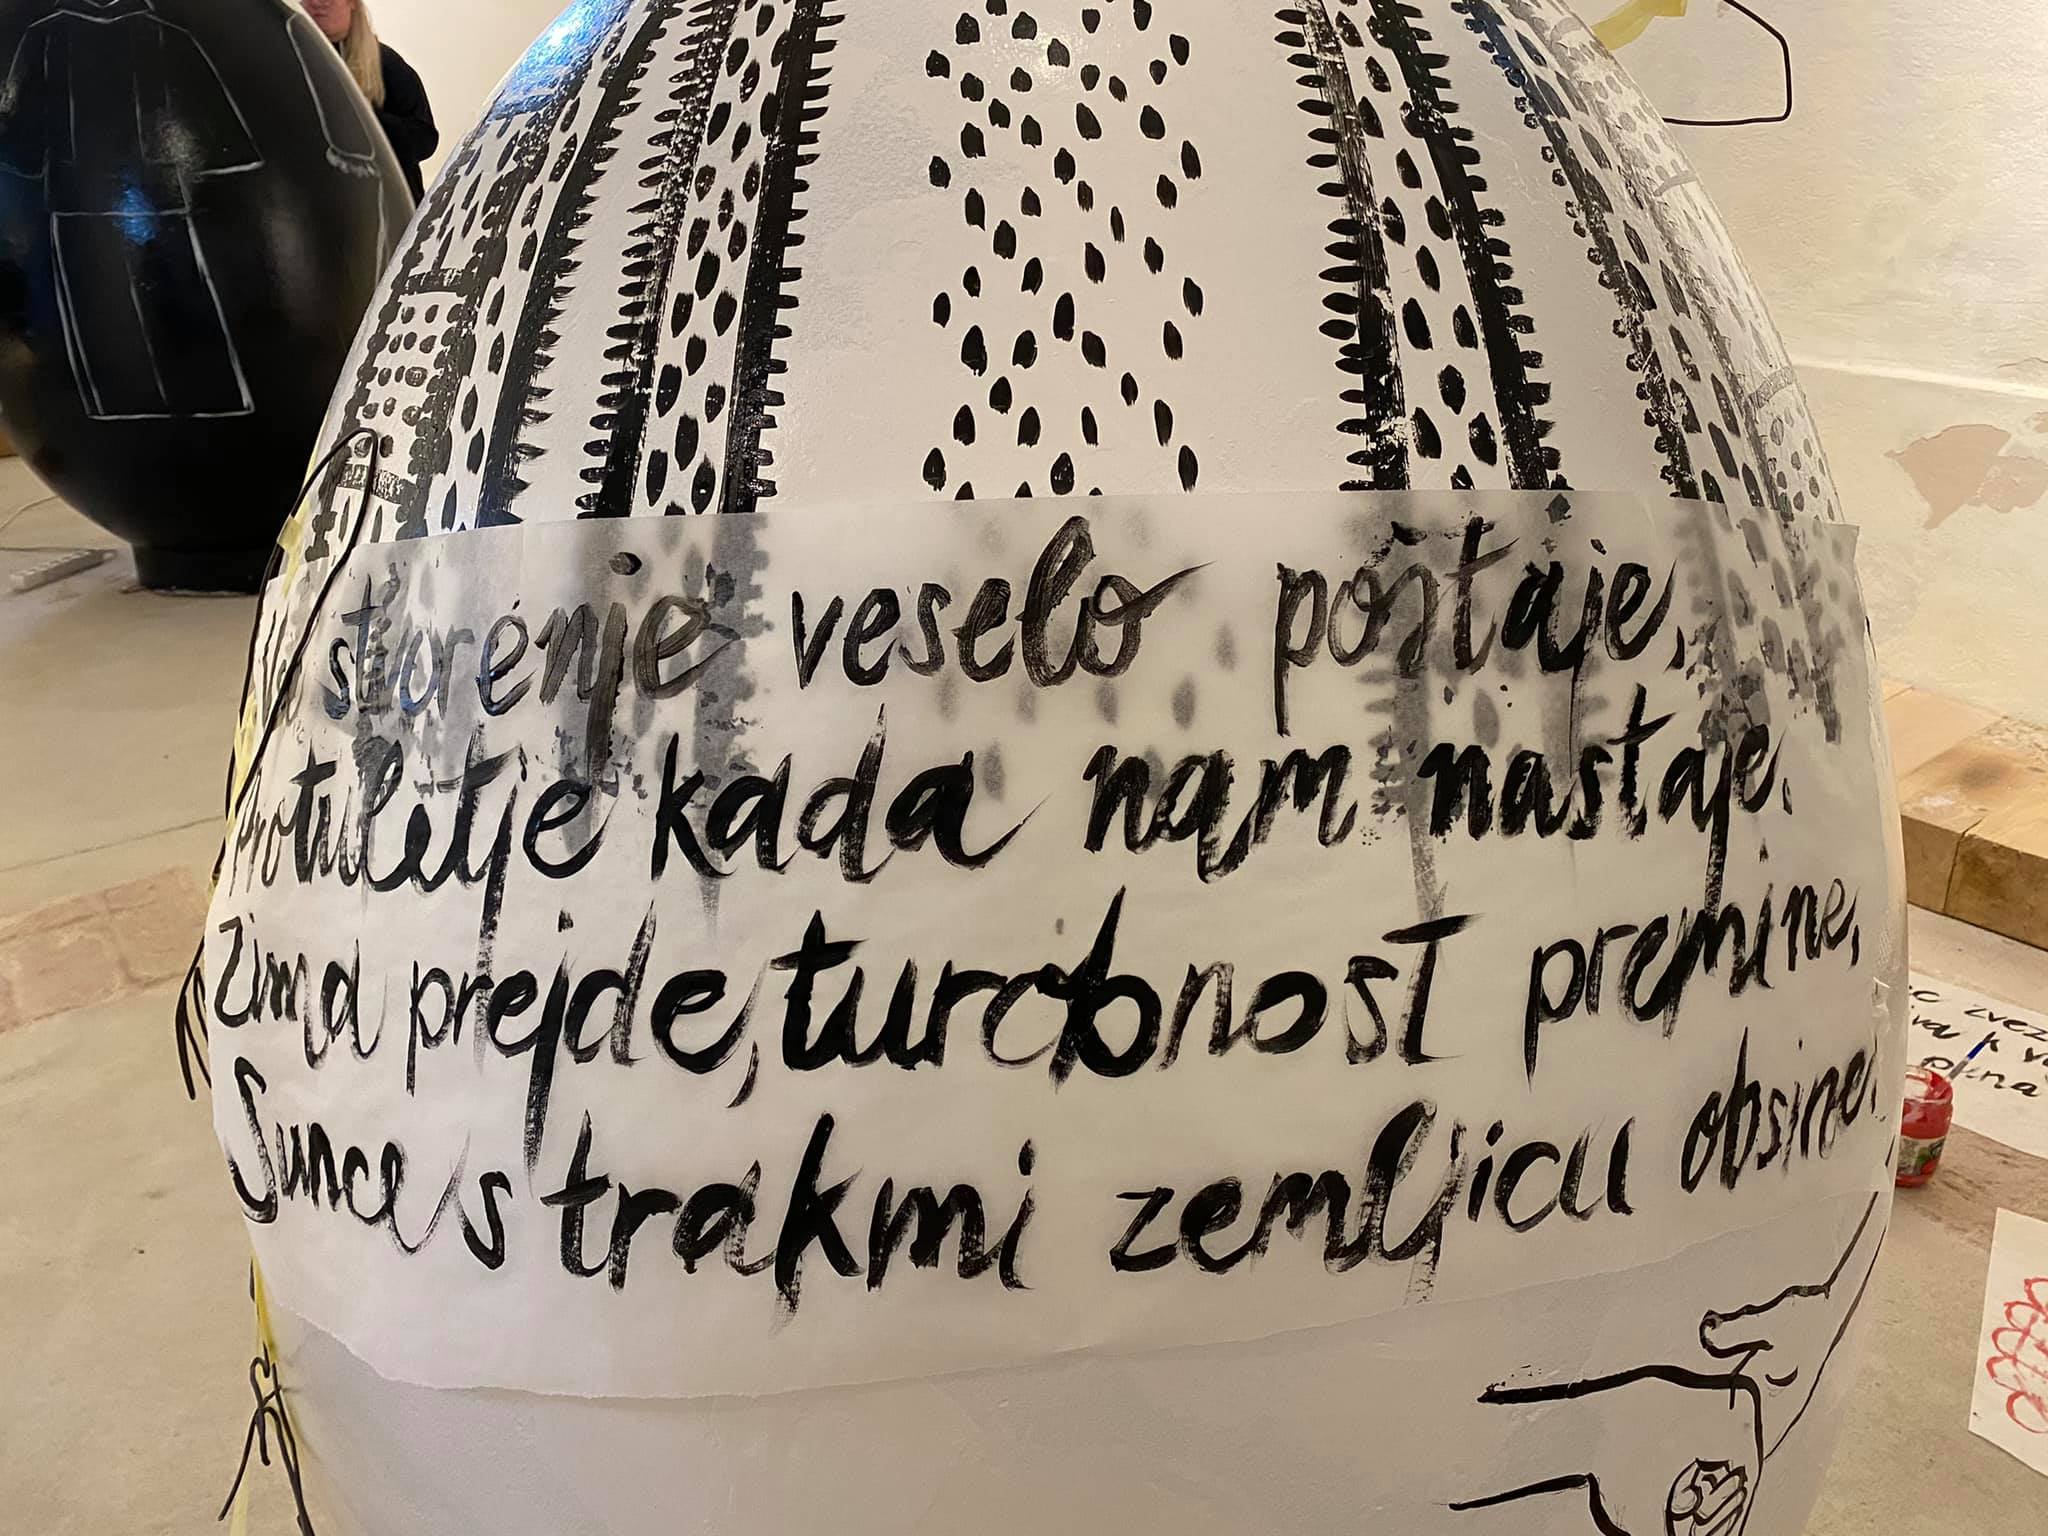 Vse stvorenje veselo postaje,
Protuletje kada nam nastaje.
Zima prejde, turobnost premine,
Sunce s trakmi zemljicu obsine.